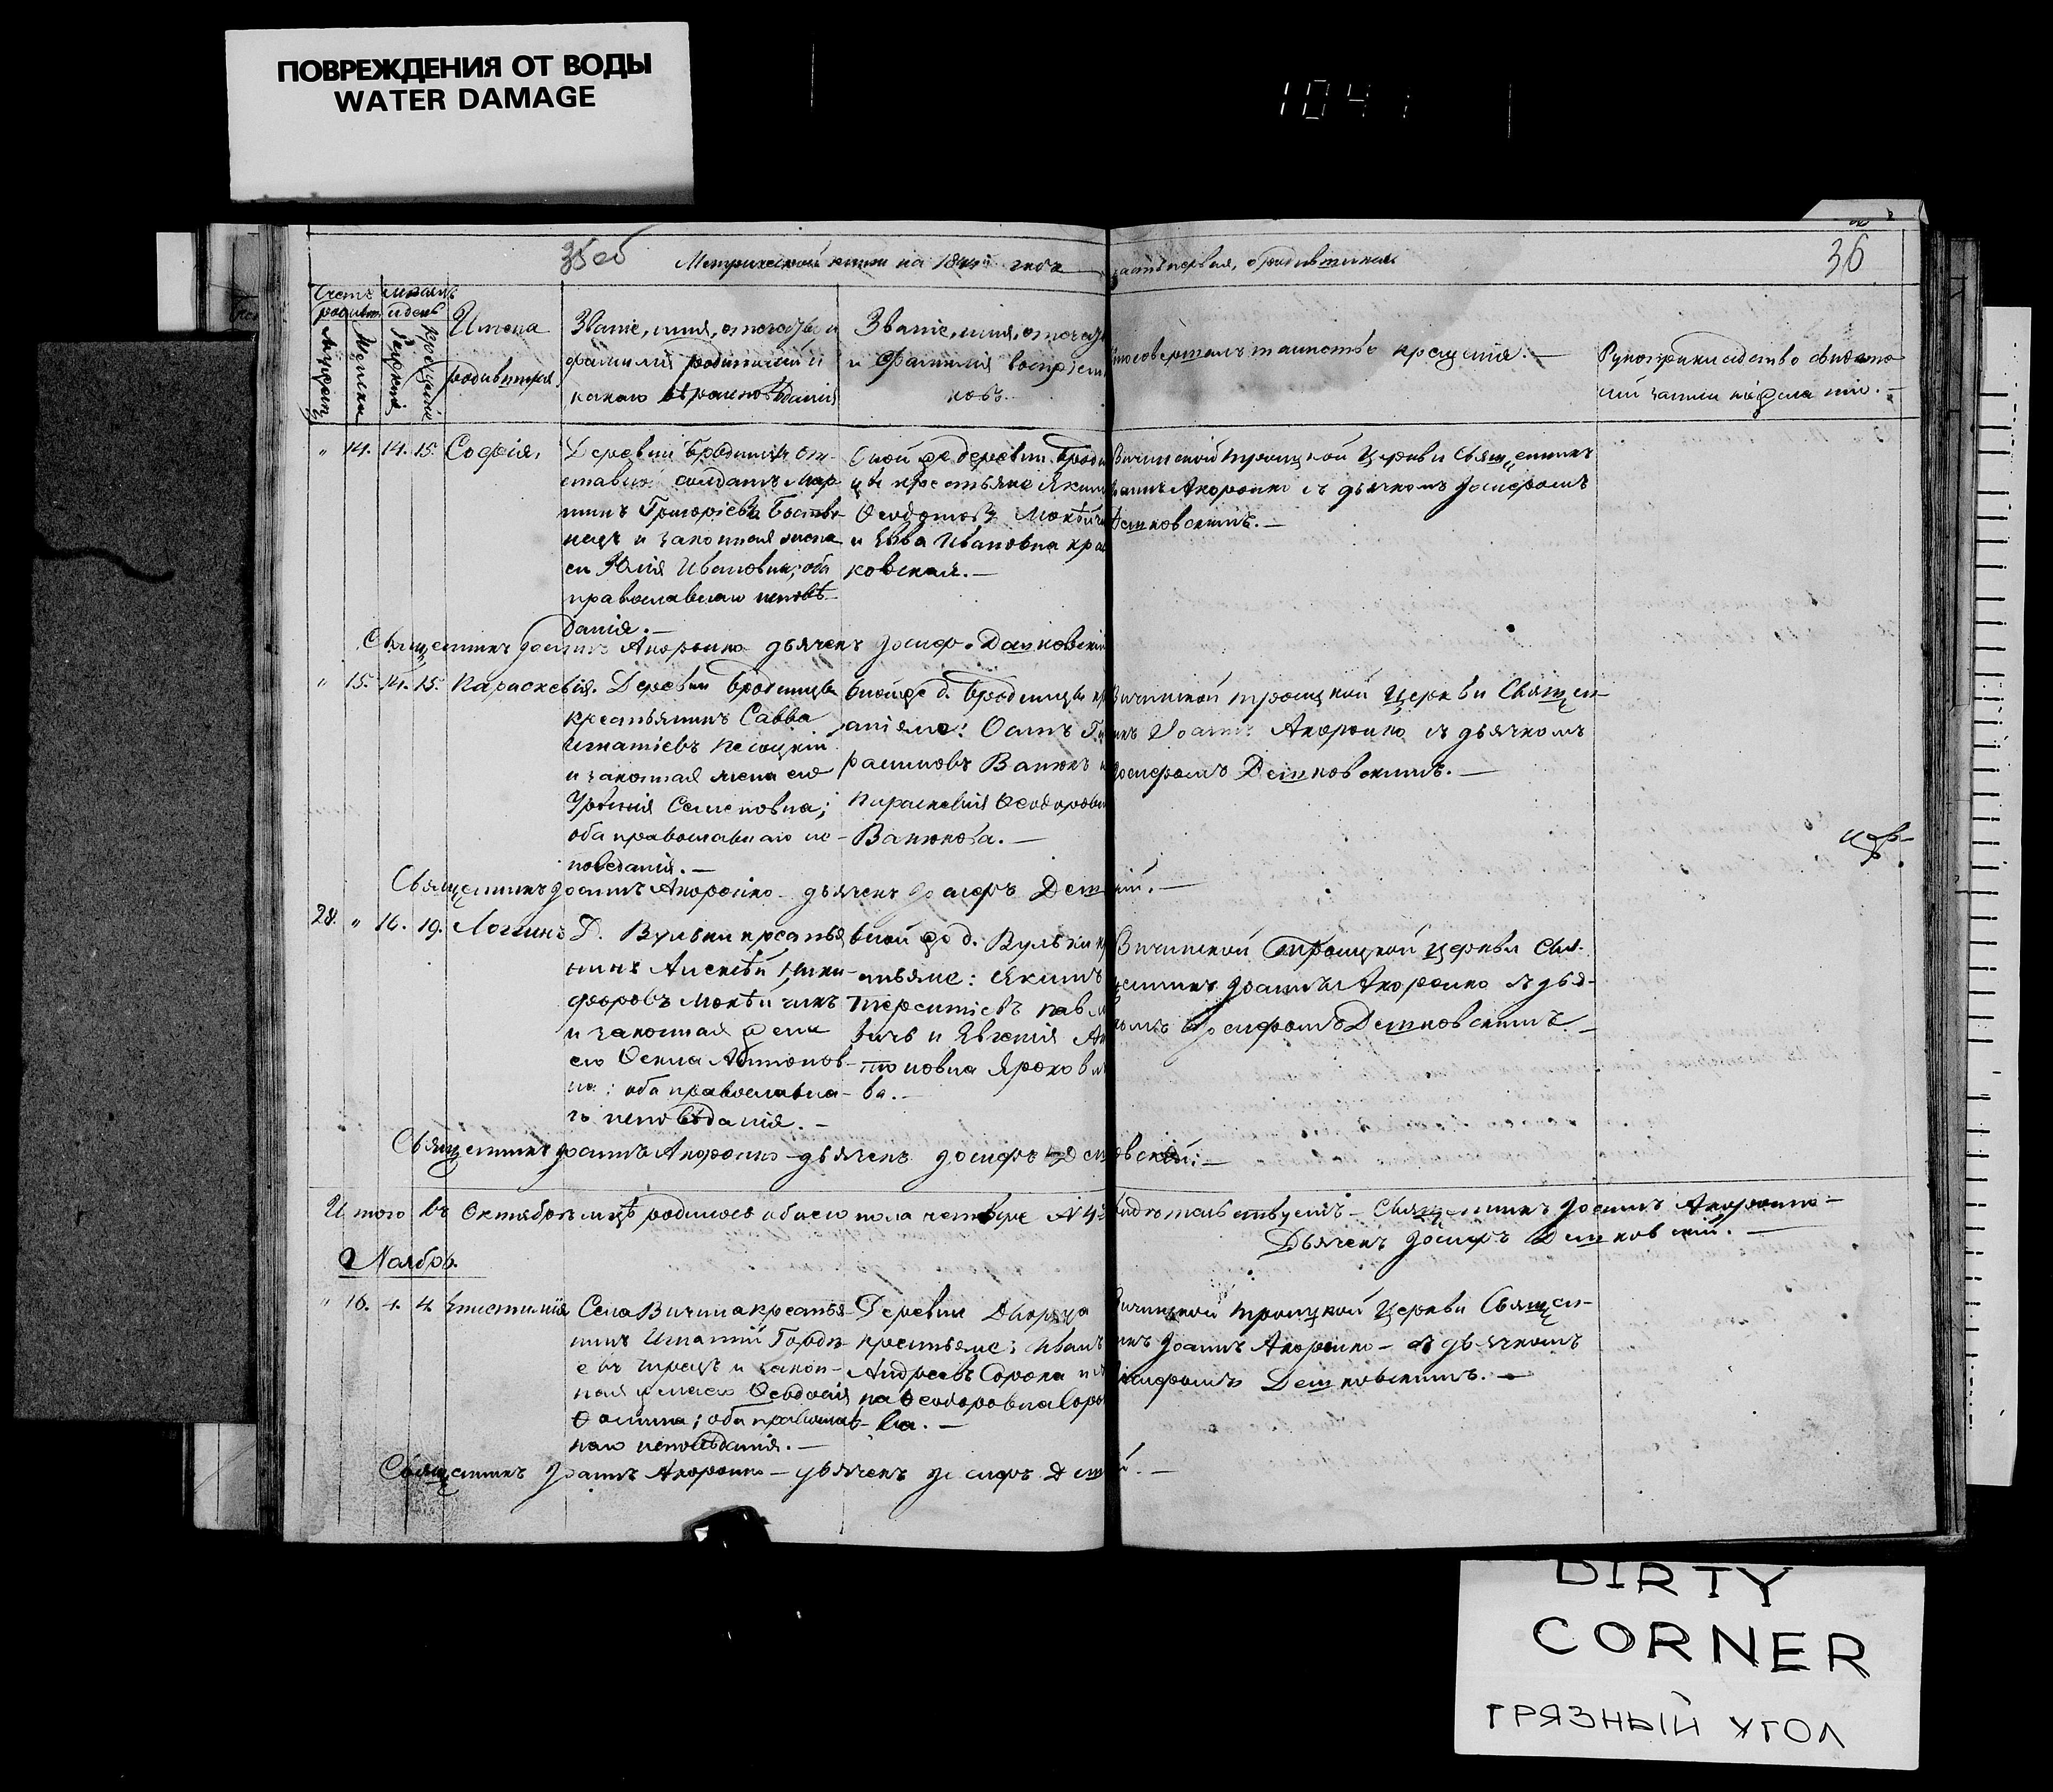 ПОВРЕЖДЕНИЯ ОТ ВОДЫ
WATER DAMAGE
1041
35 об
Метрической книги на 184 годъ часть первая, о родившихся.
36
Счетъ родивш.
Мужеска
Женска
Мѣсяцъ и день
Рожденія
Крещенія
Имена
родившихся
Званіе, имя, отчество и
фамилія родителей и
какого вѣроисповѣданія
Званіе, имя, отчеств
и Фамилія воспріем
ковъ.
Кто совершалъ таинство крещенія. —
Рукоприкладство свидѣте
лей записи по желанію. —
" 14. 14. 15. Софія,
Деревни Бродницы от-
ставной солдатъ Мар
тинъ Григоріевъ
и законная жена
его Юлія Ивановна; оба
православнаго исповѣ-
данія. —
Оной же деревни Брод
цы крестьяне Якимъ
Ѳеодотовъ
и Евва Ивановна Кра
ковская. —
Вичинской Троицкой Церкви Священникъ
Іоаннъ Акоронко съ дьячкомъ Іосифомъ
Дешковскимъ. —
Священникъ Іоаннъ Акоронко дьячекъ Іосифъ Дешковскій
" 15. 14. 15. Параскевія.
Деревни Бродницы
крестьянинъ Савва
Игнатіевъ Песоцкій
и законная жена его
Семеновна;
оба православнаго ис-
поведанія. —
Оной же д. Бродницы кр
аніяме: Осипъ Г
расимовъ Ванюкъ и
Параскевія Ѳеодоров
Ванюкова. —
Вичинской Троицкой Церкви Священ-
никъ Іоаннъ Акоронко съ дьячкомъ
Іосифомъ Дешковскимъ. —
Священникъ Іоаннъ Акоронко – дьячекъ Іосифъ Деш кій. —
28. " 16. 19. Логгинъ
Д. Вульки крестья
нинъ Алексѣй Ники-
форовъ
и законная жена
его Ѳекла Антонов-
на: оба православна-
го исповѣданія. —
Оной же д. Вульки кр
тьяне: Якимъ
Терентіевъ Павло
вичъ и Евгенія Ан
тоновна
ва. —
Вичинской Троицкой Церкви Свя-
щенникъ Іоаннъ Акоронко съ дья-
комъ Іосифомъ Дешковскимъ. —
Священникъ Іоаннъ Акоронко – дьячекъ Іосифъ Деш овскій: —
Итого въ Октябрѣ мцѣ родилось обоего пола четыре N 4. видѣтельствуемъ – Священникъ Іоаннъ Акоронко –
Дьячекъ Іосифъ Дешковскій. —
Ноябрь.
" 16. 1. 4.
Села Вичина крестья-
нинъ Игнатій Гордѣ-
евъ и закон-
ная жена его Ѳеодосія
Ѳомина; оба православ-
наго исповѣданія. —
Деревни Дворца
крестьяне: Иванъ
Андреевъ Сорока и А
на Ѳеодоровна Соро
ва. —
Вичинской Троицкой Церкви Священ-
никъ Іоаннъ Акоронко – съ дьячкомъ
Іосифомъ Дешковскимъ. —
Священникъ Іоаннъ Акоронко – дьячекъ Іосифъ Деш й. —
DIRTY
CORNER
ГРЯЗНЫЙ УГОЛ